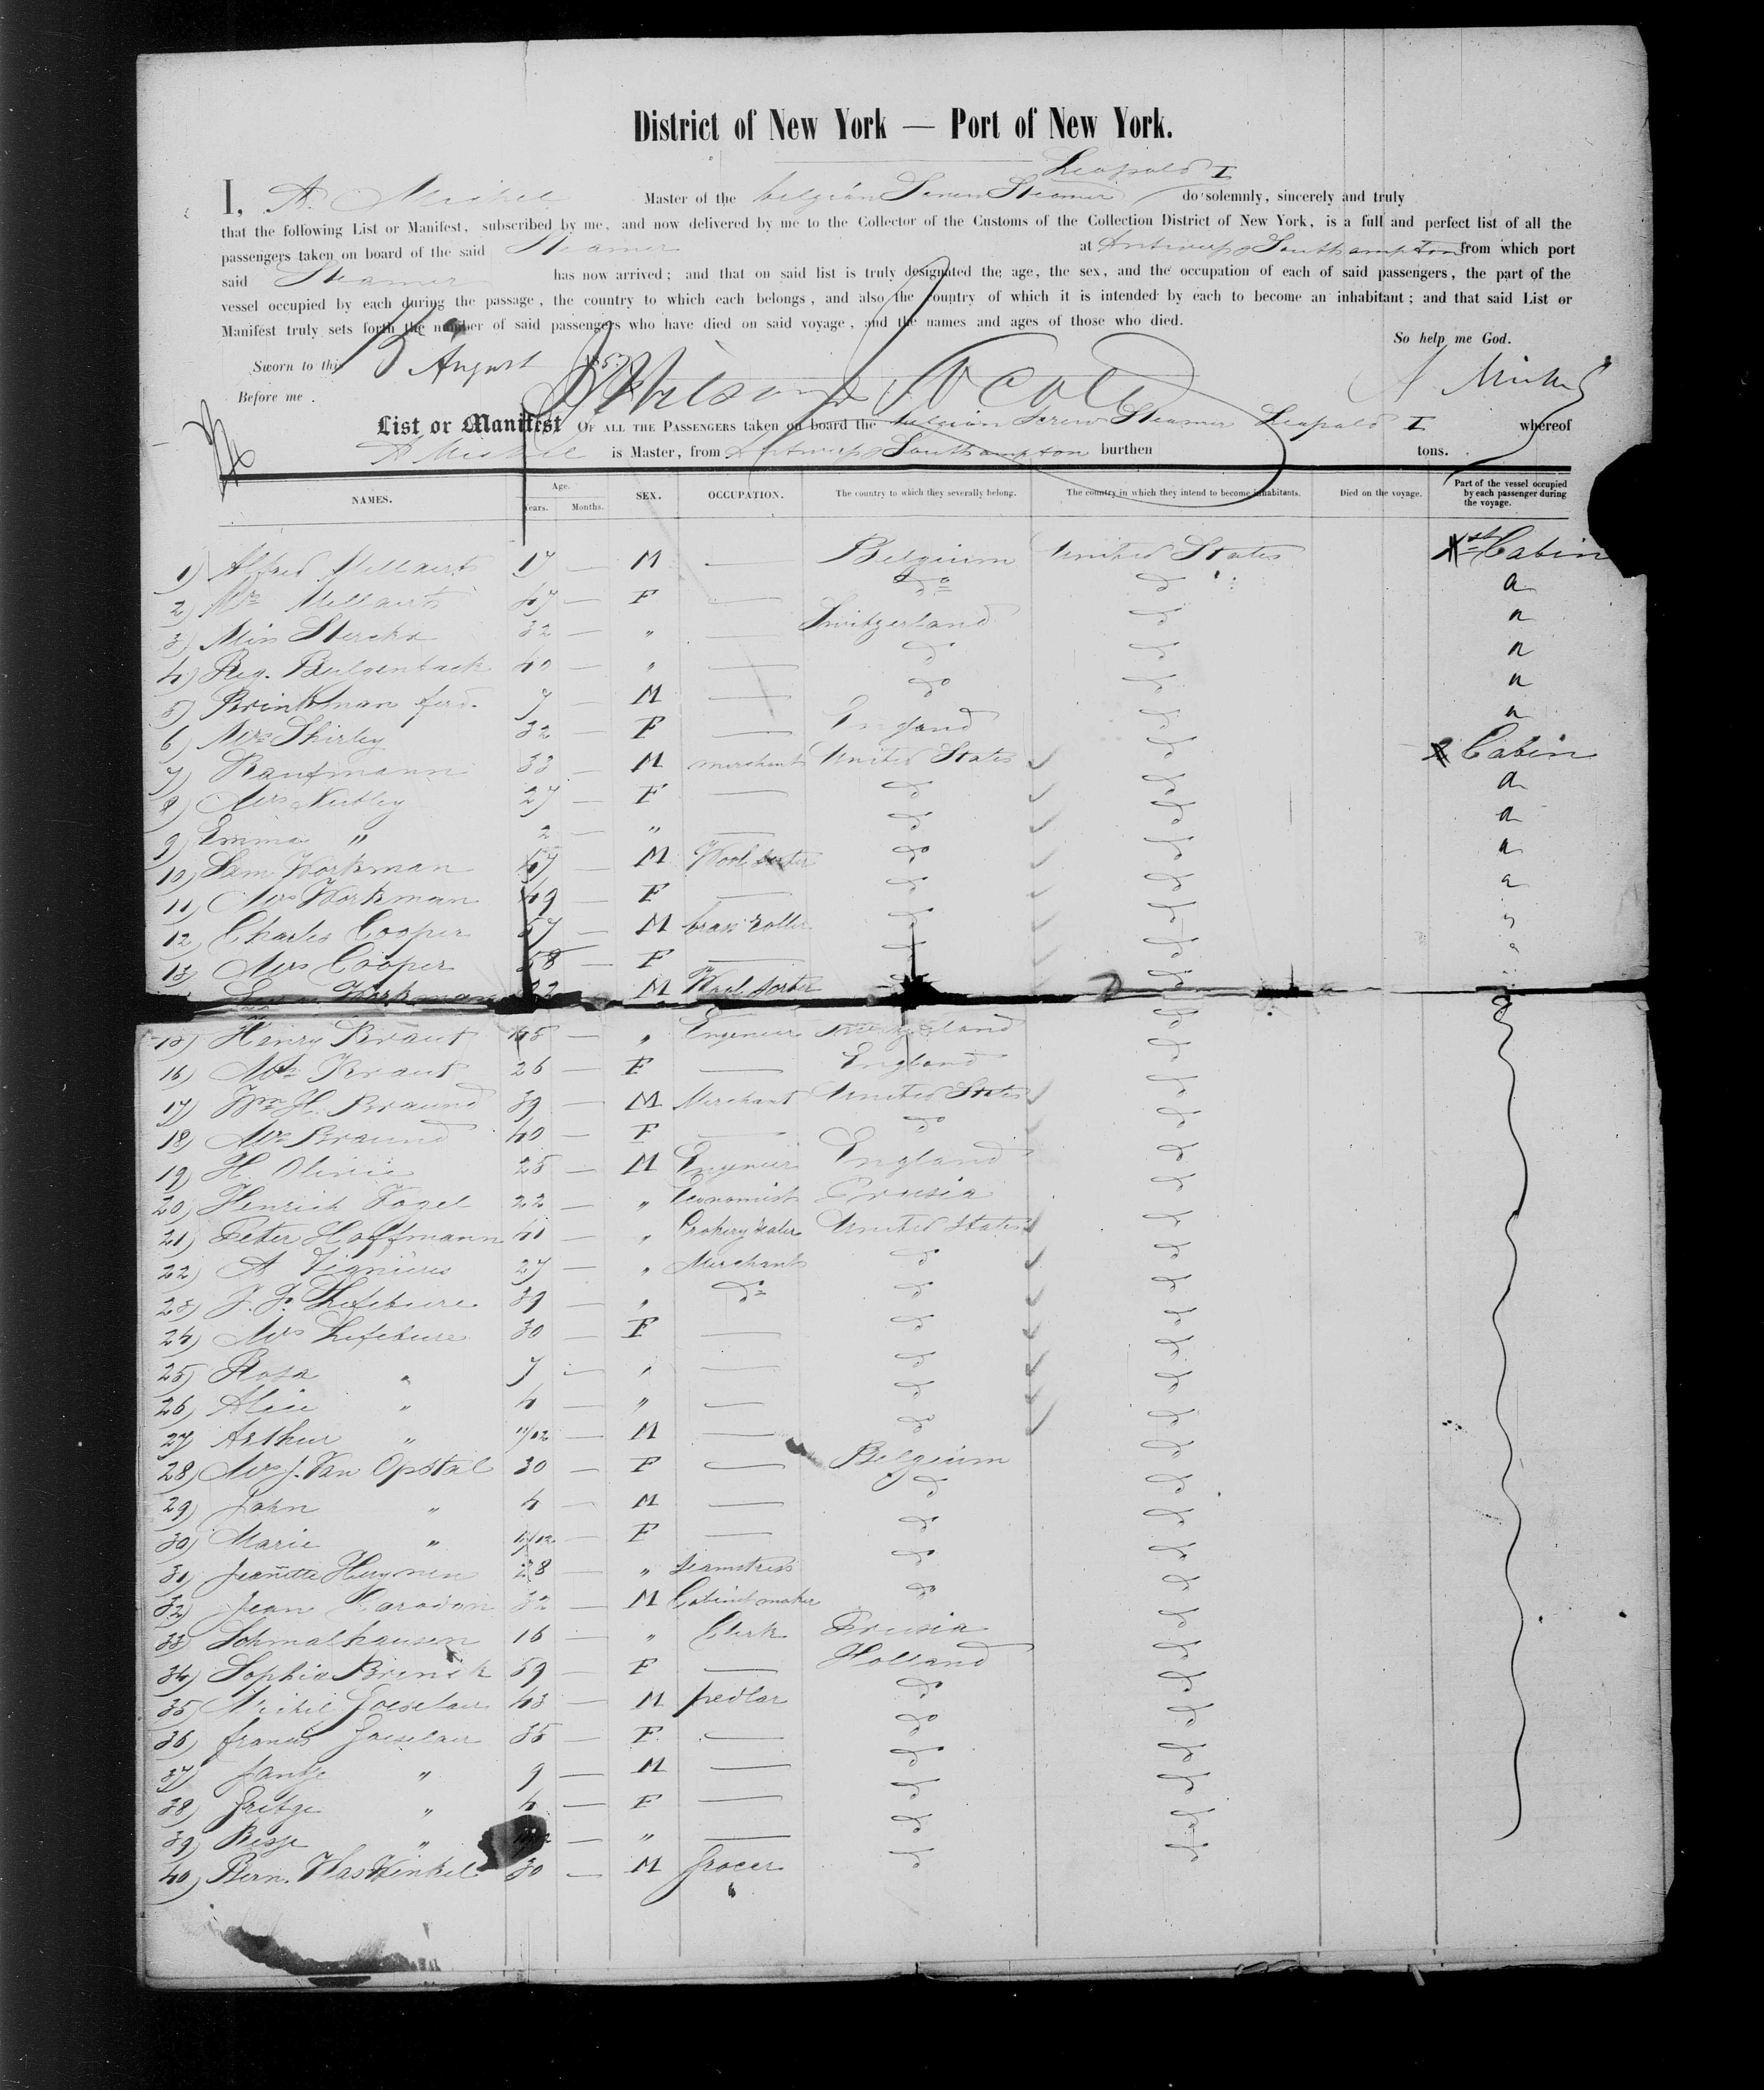 District of New York — Port of New York.
Leopold I
I, A. Michel Master of the belgian Screw Steamer do solemnly, sincerely and truly
that the following List or Manifest, subscribed by me, and now delivered by me to the Collector of the Customs of the Collection District of New York, is a full and perfect list of all the
passengers taken on board of the said Steamer at Antwerp & Southampton from which port
said Steamer has now arrived; and that on said list is truly designated the age, the sex, and the occupation of each of said passengers, the part of the
vessel occupied by each during the passage, the country to which each belongs, and also the country of which it is intended by each to become an inhabitant; and that said List or
Manifest truly sets forth the number of said passengers who have died on said voyage, and the names and ages of those who died.
So help me God.
Sworn to this August
Before me.
List or Manifest OF ALL THE PASSENGERS taken on board the belgian Screw Steamer Leopold I whereof
A Michel is Master, from Antwerp & Southampton burthen tons.
NAMES. Age. Years. Months. SEX. OCCUPATION. The country to which they severally belong. The country in which they intend to become inhabitants. Died on the voyage. Part of the vessel occupied by each passenger during the voyage.
1) Alfred Mellaerts 17 — M — Belgium United States 1st Cabin
2) Mrs Mellaerts 47 — F — do d a
3) Miss Sterckx 32 — " — Switzerland d a
4) Reg. Bulgenbach 40 — " — d d a
5) Brinkman ferd. 7 — M — do d a
6) Mrs Shirley 32 — F — England d a
7) Kaufmann 33 — M merchant United States d 2 Cabin
8) Mrs 27 — F — d d a
9) Emma " 2 — " — d d a
10) Sam Workman 47 — M Wool sorter do d a
11) Mrs Workman 49 — F — d d a
12) Charles Cooper 57 — M brass roller d d
13) Mrs Cooper 58 — F — d d
Workman 22 M Wool sorter d
15) Henry Kraut 45 — " Engineer Switzerland d
16) Mrs Kraut 26 — F — England d
17) Wm H. Braund 39 — M Merchant United States d
18) Mrs Braund 40 — F — do d
19) H. Olivie 25 — M Engineer England d
20) Henrich Vogel 22 — " Economist Prusia d
21) Peter Hoffmann 41 — " Crokery dealer United States d
22) A Vignieres 27 — " Merchant d d
23) J. J. Lefebure 39 — " do d d
24) Mrs Lefebure 30 — F — d d
25) Rosa " 7 — " — d d
26) Alice " 4 — " — d d
27) Arthur " 11/12 — M — d d
28) Mrs J. Van Opstal 30 — F — Belgium d
29) John " 4 — M — d d
30) Marie " 11/12 — F — d d
31) Jeannette Heymen 28 — " seamstress d d
32) Jean 32 — M Cabinet maker do d
33) Schmalhausen 16 — " Clerk Prusia d
34) Sophia Brinck 59 — F — Holland d
35) Michil Goeselaer 43 — M pedlar d d
36) francis Goeselaer 35 — F — do d
37) Jantje " 9 — M — d d
38) Grietje " 4 — F — d d
39) Besje " — " — d d
40) Bern. Haswinkel 30 — M Grocer d d